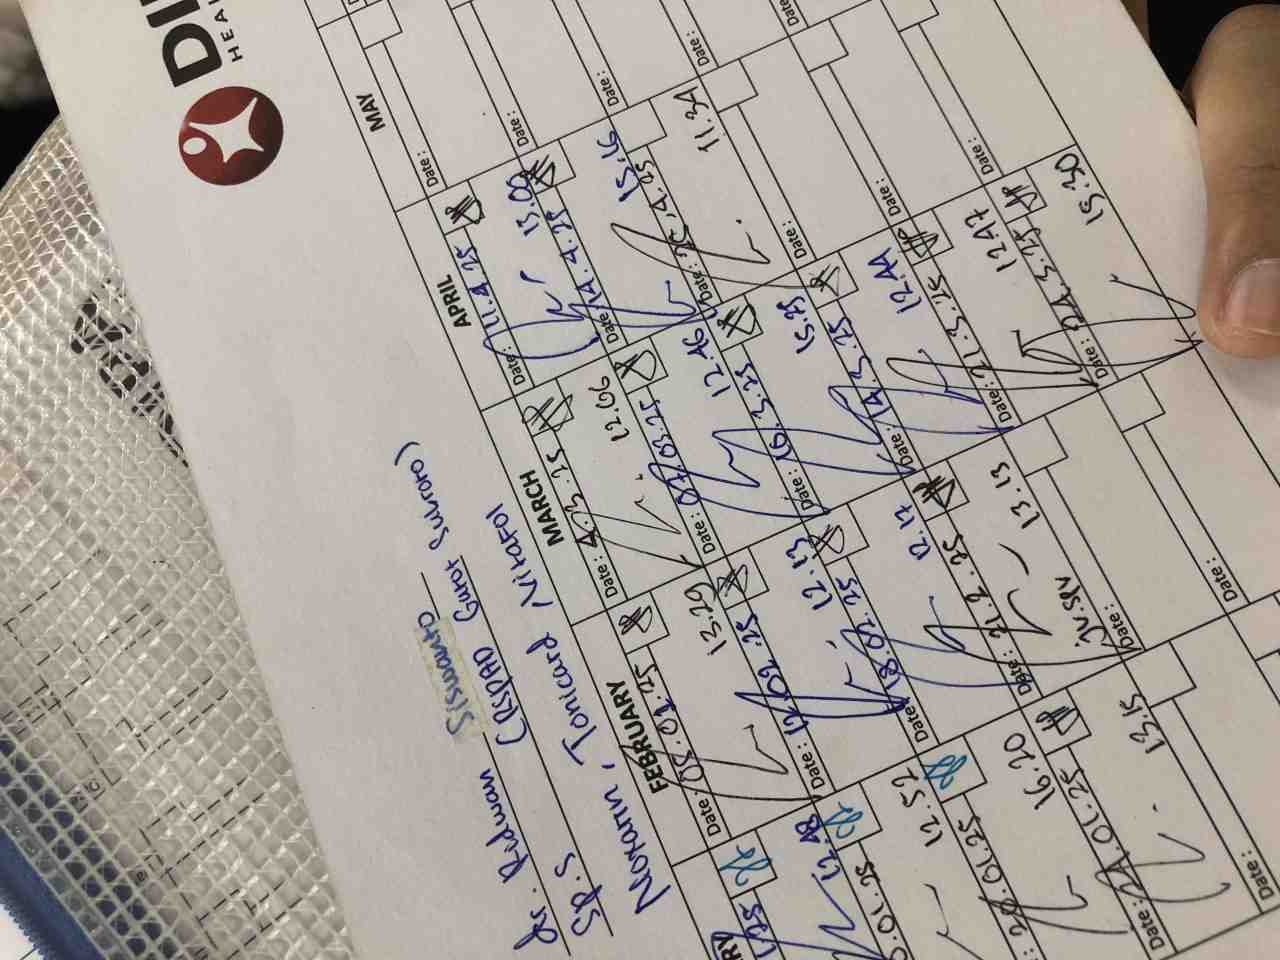 DI
HEA
dr. Ridwan Siswanto
Sp.S (RSPAD Gatot Subroto)
Neoxann, Tonicard, Nitrafol
RY FEBRUARY MARCH APRIL MAY
1.25
12.48
.01.25
12.52
.01.25
16.20
Date: 24.01.25
13.15
Date:
Date: 08.02.25
13.29
Date: 12.02.25
12.13
Date: 18.02.25
12.17
Date: 21.2.25
13.13
JV.SPV
Date:
Date: 4.3.25
12.06
Date: 07.03.25
12.46
Date: 16.3.25
15.25
Date: 14.3.25
12.44
Date: 21.3.25
12.47
Date: 24.3.25
15.30
Date: 11.4.25
13.00
Date: 14.4.25
15.16
Date: 26.4.25
11.34
Date:
Date:
Date:
Date:
Date:
Date:
Date:
Date: